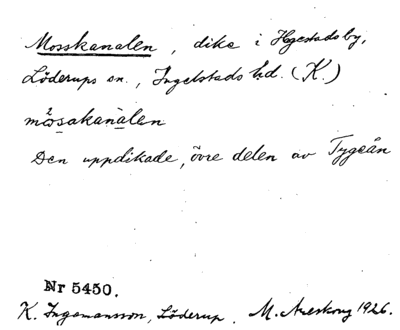 Mosskanalen, dike i Hagestadsby,
Löderups sn., Ingelstads hd. (K.)
mòsakanàlen
Den uppdikade, övre delen av Tygeån
Nr 5450.
K. Ingemansson, Löderup. M. Areskoug 1926.